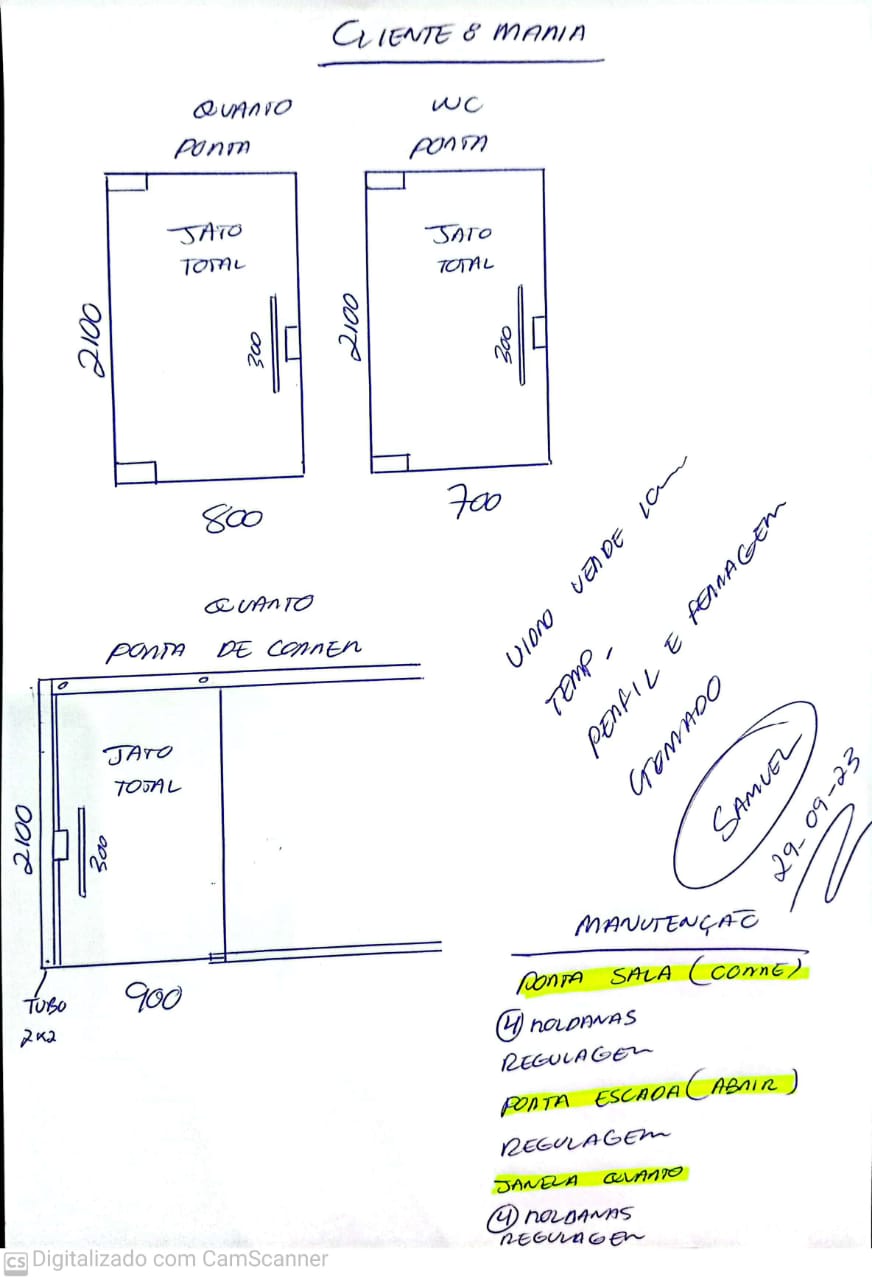 CLIENTE 8 MARIA
QUARTO
PORTA
WC
PORTA
JATO
TOTAL
JATO
TOTAL
2100
300
2100
300
800
700
VIDRO VERDE 10m
TEMP.
PERFIL E FERRAGEM
CROMADO
SAMUEL
29-09-23
QUARTO
PORTA DE CORRER
JATO
TOTAL
2100
300
900
TUBO
2x2
MANUTENÇÃO
PORTA SALA (CORRE)
4 ROLDANAS
REGULAGEM
PORTA ESCADA (ABRIR)
REGULAGEM
JANELA QUARTO
4 ROLDANAS
REGULAGEM
CS Digitalizado com CamScanner